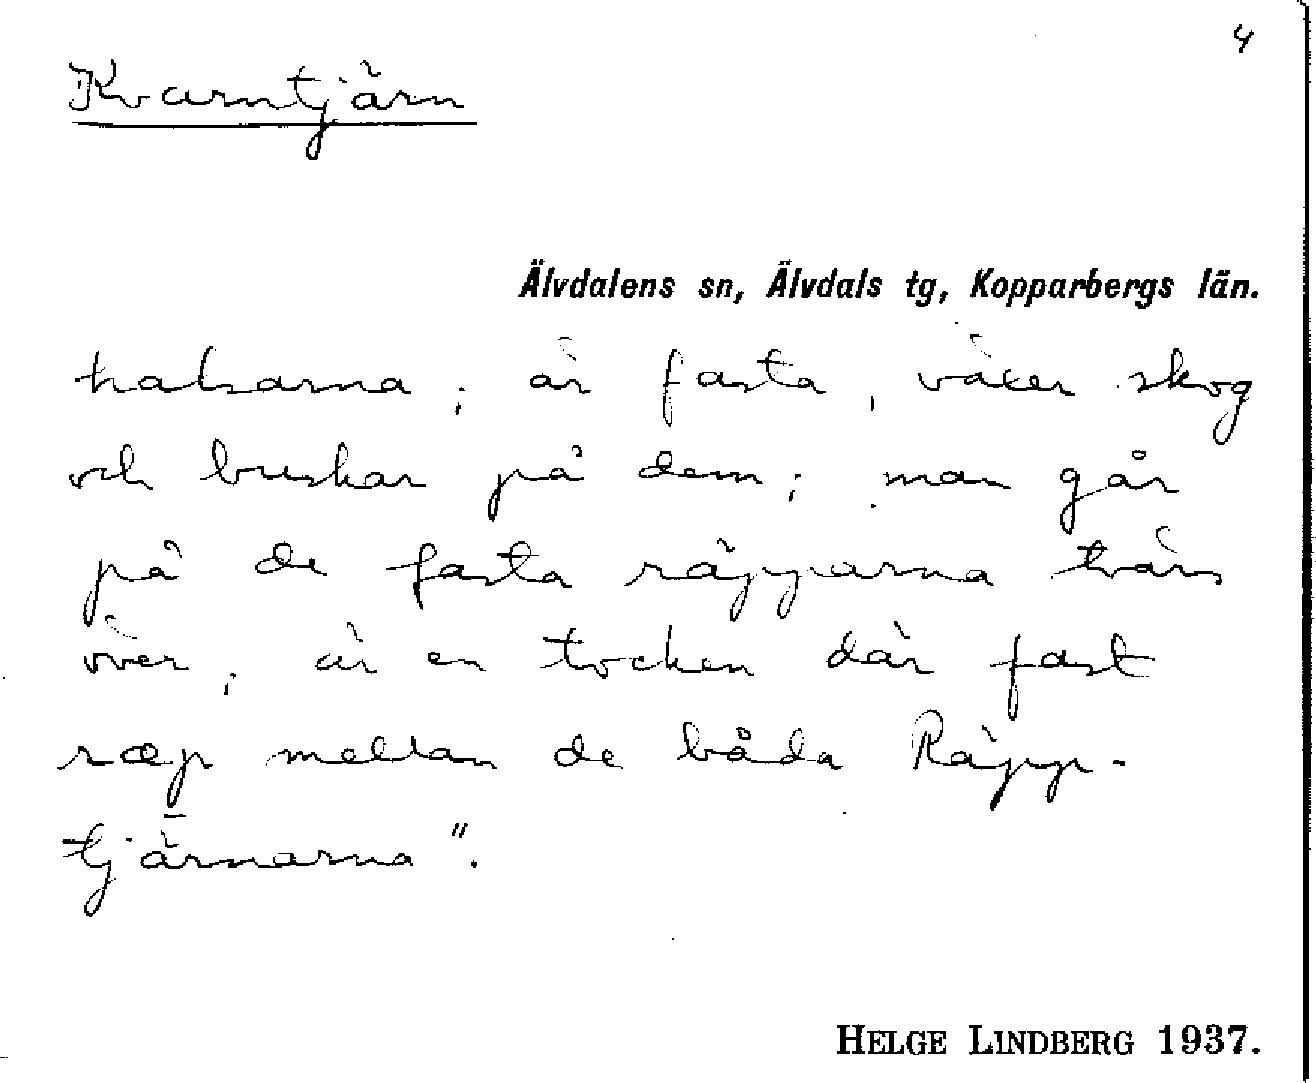 4
Kvarntjärn
Älvdalens sn, Älvdals tg, Kopparbergs län.
halsarna; är fasta, växer skog
och buskar på dem; man går
på de fasta räpparna tvärs
över; är en tocken där fast
ræp mellan de båda Räpp-
tjärnarna".
HELGE LINDBERG 1937.